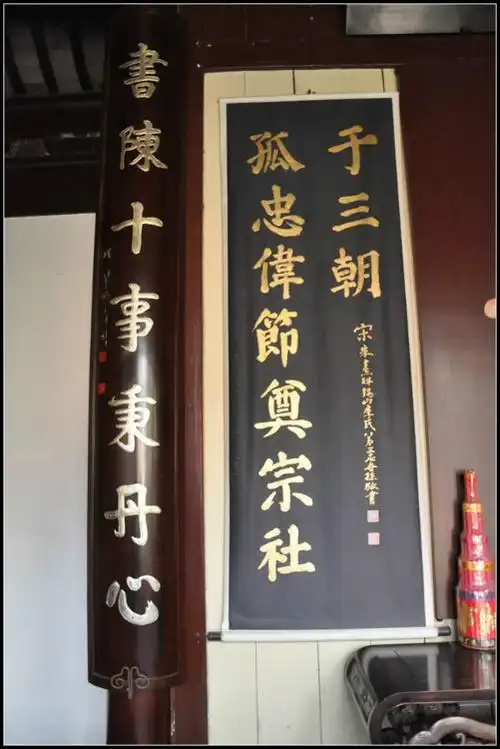 孤忠偉節奠宗社
于三朝
宋朱熹
書陳十事秉丹心